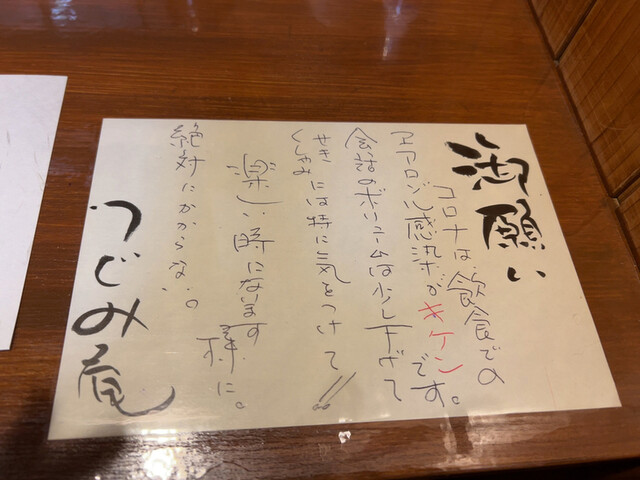 御願い
コロナは、飲食での
エアロゾル感染がキケンです。
会話のボリュームは少し下げて
せき くしゃみ には特に気をつけて!!
楽しい時になります
様に。
絶対にかからない。
つじみ庵